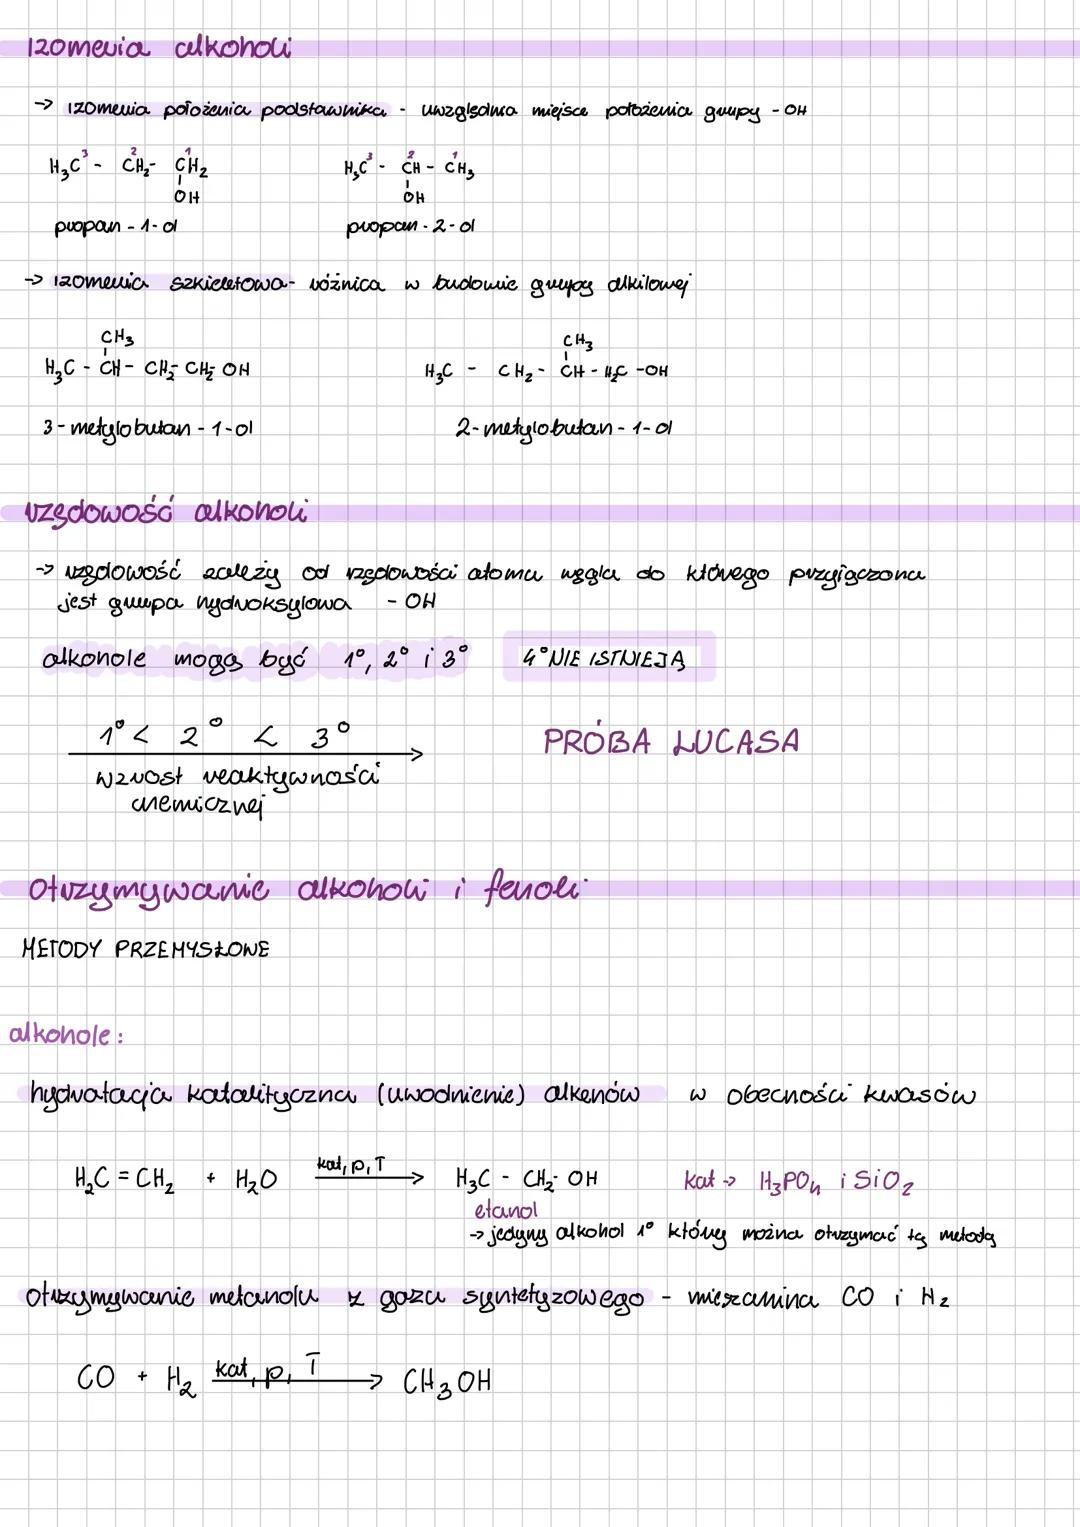 Izomeria alkoholi
→ izomeria położenia podstawnika - uwzględnia miejsce położenia grupy -OH
H₃C³ - CH₂² - CH₂¹
OH
propan-1-ol
H₃C³ - CH² - CH₃¹
OH
propan-2-ol
→ izomeria szkieletowa - różnica w budowie grupy alkilowej
CH₃
H₃C - CH - CH₂ - CH₂ - OH
3-metylobutan-1-ol
CH₃
H₃C - CH₂ - CH - H₂C - OH
2-metylobutan-1-ol
rzędowość alkoholi
→ rzędowość zależy od rzędowości atomu węgla do którego przyłączona
jest grupa hydroksylowa -OH
alkohole mogą być 1°, 2° i 3° 4° NIE ISTNIEJĄ
1° < 2° < 3°
wzrost reaktywności
chemicznej
PRÓBA LUCASA
Otrzymywanie alkoholi i fenoli
METODY PRZEMYSŁOWE
alkohole:
hydratacja katalityczna (uwodnienie) alkenów w obecności kwasów
H₂C = CH₂ + H₂O kat, p, T → H₃C - CH₂ - OH kat → H₃PO₄ i SiO₂
etanol
→ jedyny alkohol 1° który można otrzymać tą metodą
otrzymywanie metanolu z gazu syntetyzowego - mieszanina CO i H₂
CO + H₂ kat, p, T → CH₃OH